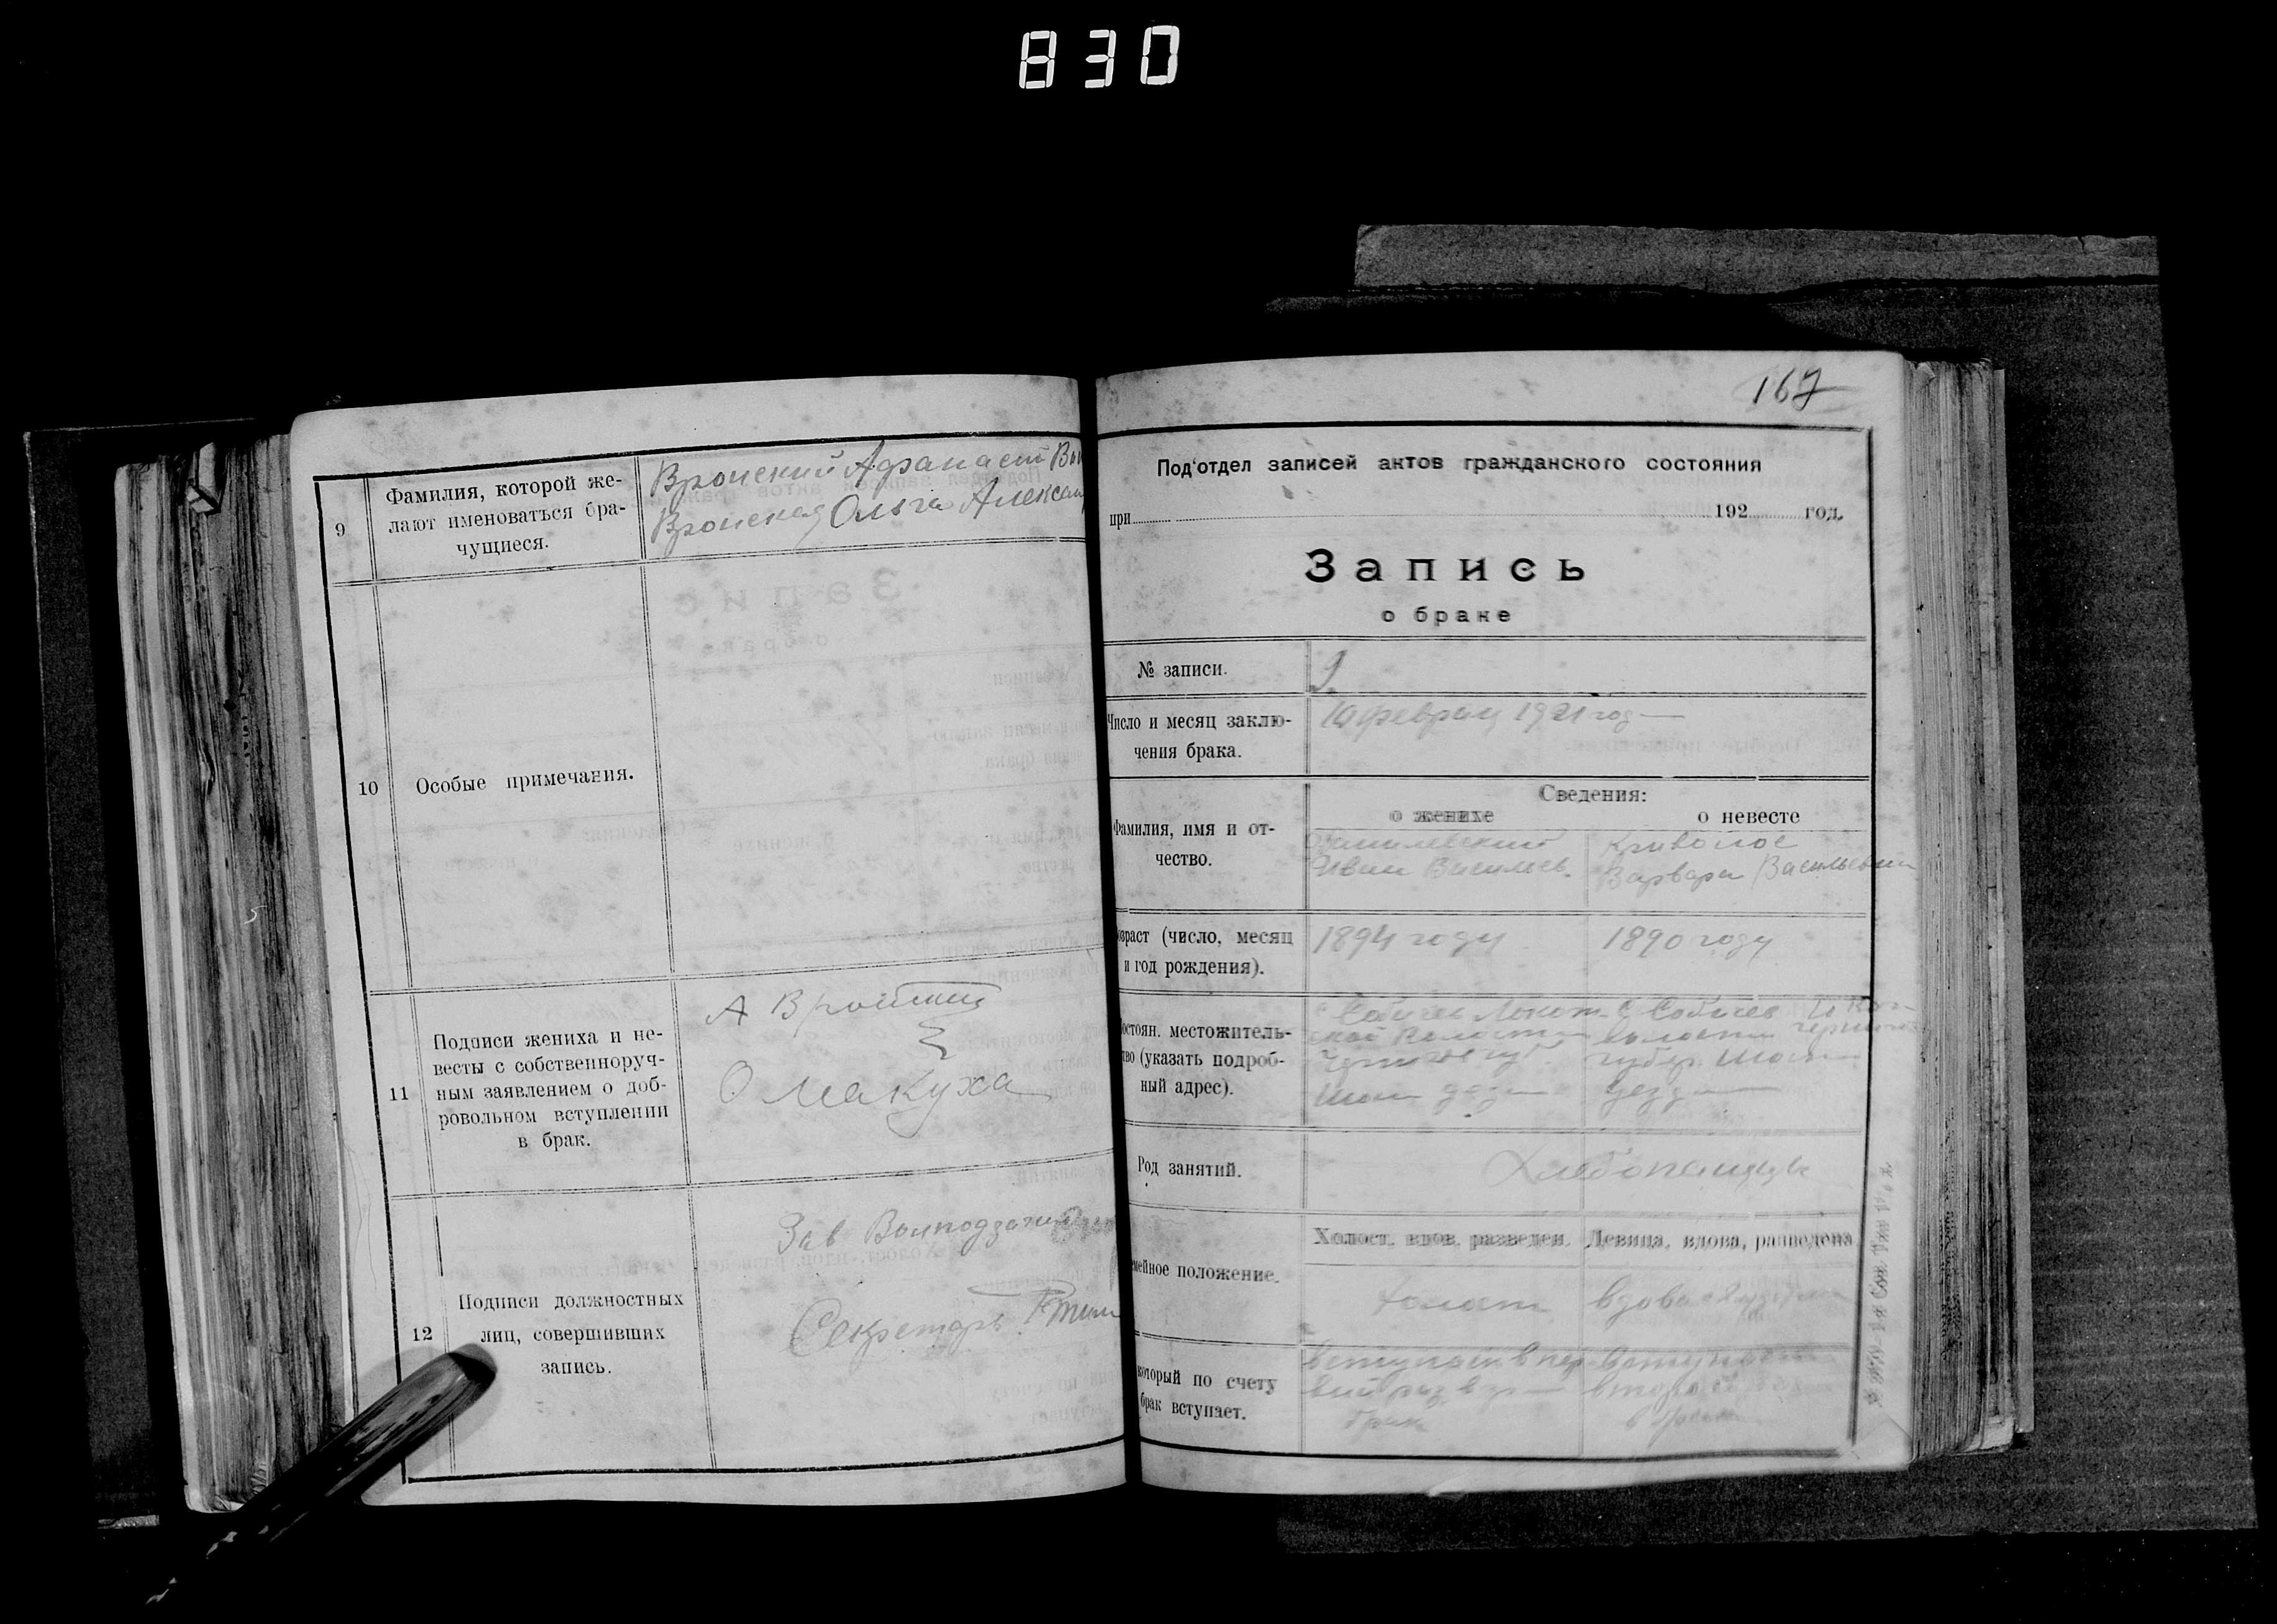 830
9
Фамилия, которой же-
лают именоваться бра-
чущиеся.
Вронский Афанасий
Вронская Ольга Алексан
10
Особые примечания.
11
Подписи жениха и не-
весты с собственноруч-
ным заявлением о доб-
ровольном вступлении
в брак.
А Вронский
О Макуха
12
Подписи должностных
лиц, совершивших
запись.
Зав
Секретарь
167
Под'отдел записей актов гражданского состояния
при 192 год.
Запись
о браке
№ записи.
9
Число и месяц заклю-
чения брака.
10 февраля 1921 год
Сведения:
о женихе
о невесте
Фамилия, имя и от-
чество.
Иван Васильев.
Кривонос
Варвара Васильевна
озраст (число, месяц
и год рождения).
1894 году
1890 году
остоян. местожитель-
тво (указать подроб-
ный адрес).
с Собичев
с Собичев
волости
губер.
уезда
Род занятий.
Хлебопашцы
мейное положение.
Холост. вдов. разведен.
Девица, вдова, разведена
холост
вдова
который по счету
брак вступает.
вступает в пер
вый раз в
брак
вступает
второй
в брак